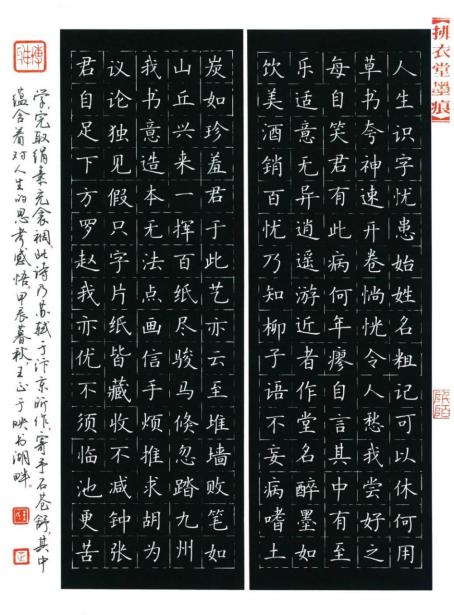 衣堂墨痕】
人生识字忧患始姓名粗记可以休何用
草书夸神速开卷惝恍令人愁我尝好之
每自笑君有此病何年瘳自言其中有至
乐适意无异逍遥游近者作堂名醉墨如
饮美酒销百忧乃知柳子语不妄病嗜土
炭如珍羞君于此艺亦云至堆墙败笔如
山丘兴来一挥百纸尽骏马倏忽踏九州
我书意造本无法点画信手烦推求胡为
议论独见假只字片纸皆藏收不减钟张
君自足下方罗赵我亦优不须临池更苦
学完取绢素充衾裯此诗乃苏轼于汴京所作寄予石苍舒其中
蕴含着对人生的思考感悟甲辰暮秋王正于映书湖畔